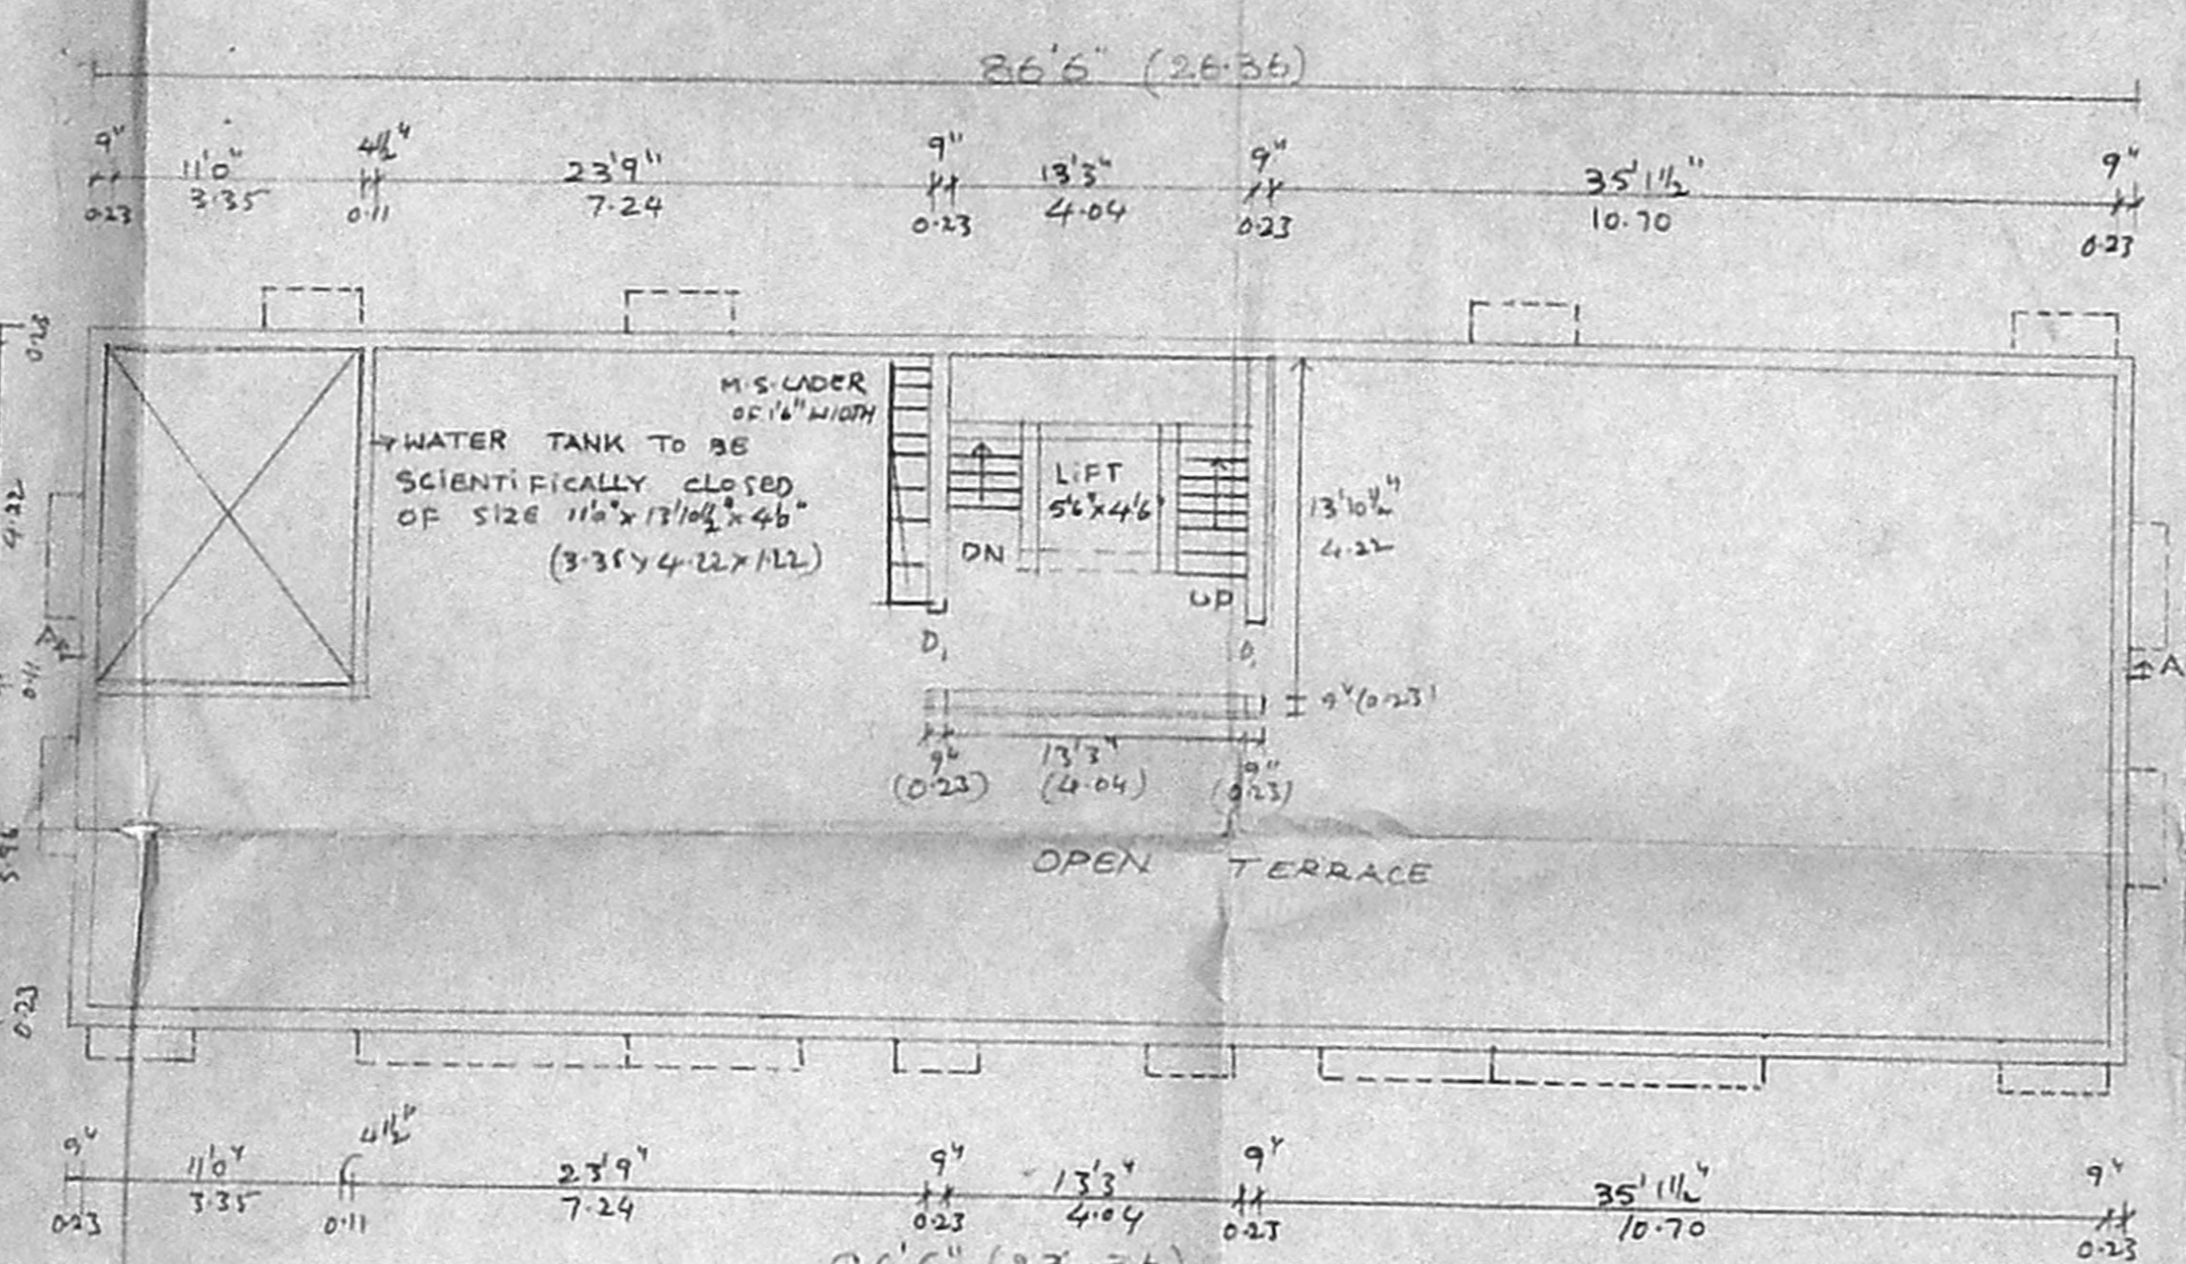 86'6" (26.36)
9" 11'0" 4½" 23'9" 9" 13'3" 9" 35'1½" 9"
0.23 3.35 0.11 7.24 0.23 4.04 0.23 10.70 0.23
0.23
M.S. LADER
OF 1'6" WIDTH
WATER TANK TO BE
SCIENTIFICALLY CLOSED
OF SIZE 11'0" x 13'10½" x 4'0"
(3.35 x 4.22 x 1.22)
LIFT
5'6" x 4'6"
DN
UP
13'10½"
4.22
4.22
D₁
D₁
0.11
A
9" (0.23)
9" 13'3" 9"
(0.23) (4.04) (0.23)
5.96
OPEN TERRACE
0.23
9" 11'0" 4½" 23'9" 9" 13'3" 9" 35'1½" 9"
0.23 3.35 0.11 7.24 0.23 4.04 0.23 10.70 0.23